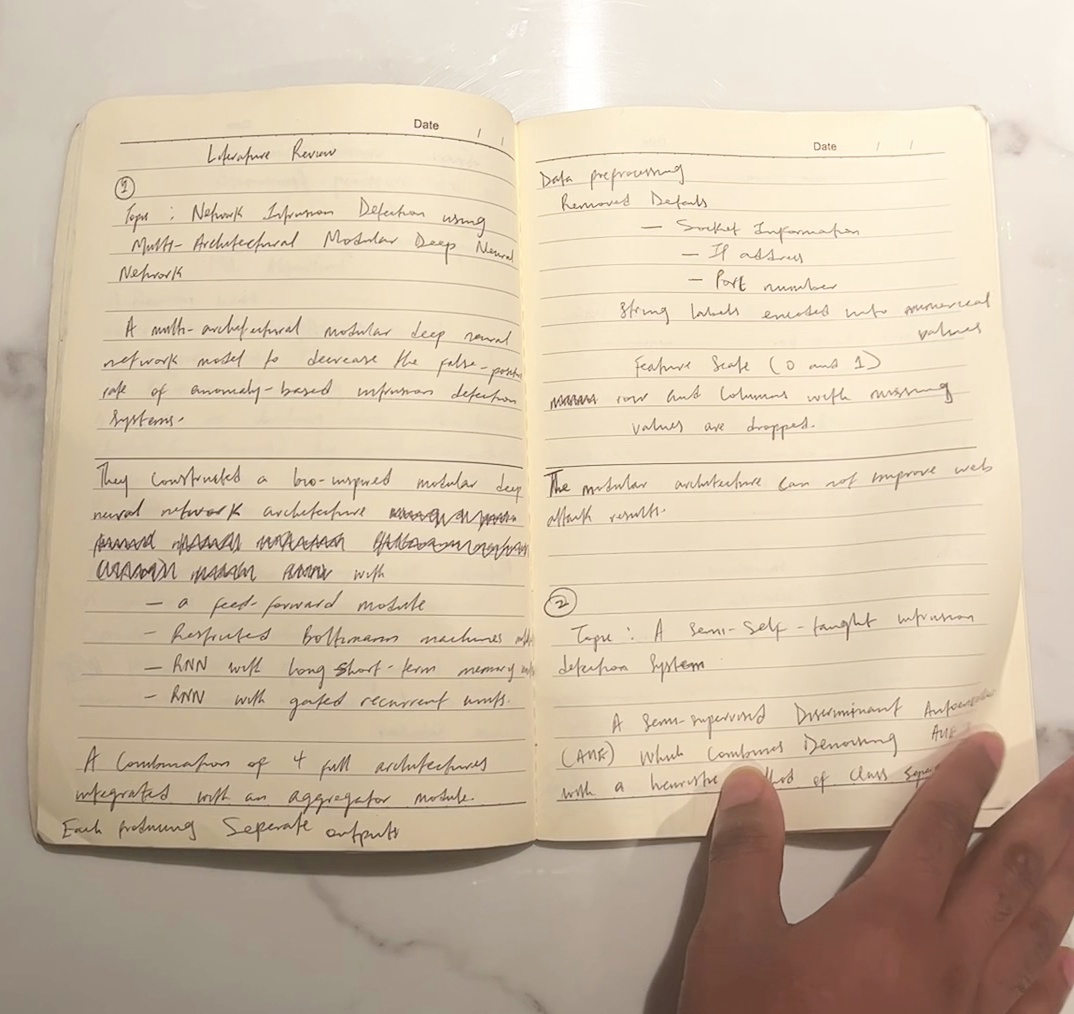 Date / /
Literature Review
1
Topic : Network Intrusion Detection using
Multi-Architectural Modular Deep Neural
Network
A multi-architectural modular deep neural
network model to decrease the false-positive
rate of anomaly-based intrusion detection
systems.
They constructed a bio-inspired modular deep
neural network architecture
with
- a feed-forward module
- Restricted Boltzmann machines
- RNN with long short-term memory
- RNN with gated recurrent units.
A Combination of 4 full architectures
integrated with an aggregator module.
Each producing Seperate outputs
Date / /
Data preprocessing
Removed Details
- Socket Information
- IP address
- Port number
String labels encoded into numerical
values
Feature Scale (0 and 1)
row and Columns with missing
values are dropped.
The modular architecture can not improve web
attack results.
2
Topic : A Semi-Self-taught intrusion
detection System
A Semi-supervised Discriminant
Which Combines Denoising
with a heuristic of Class